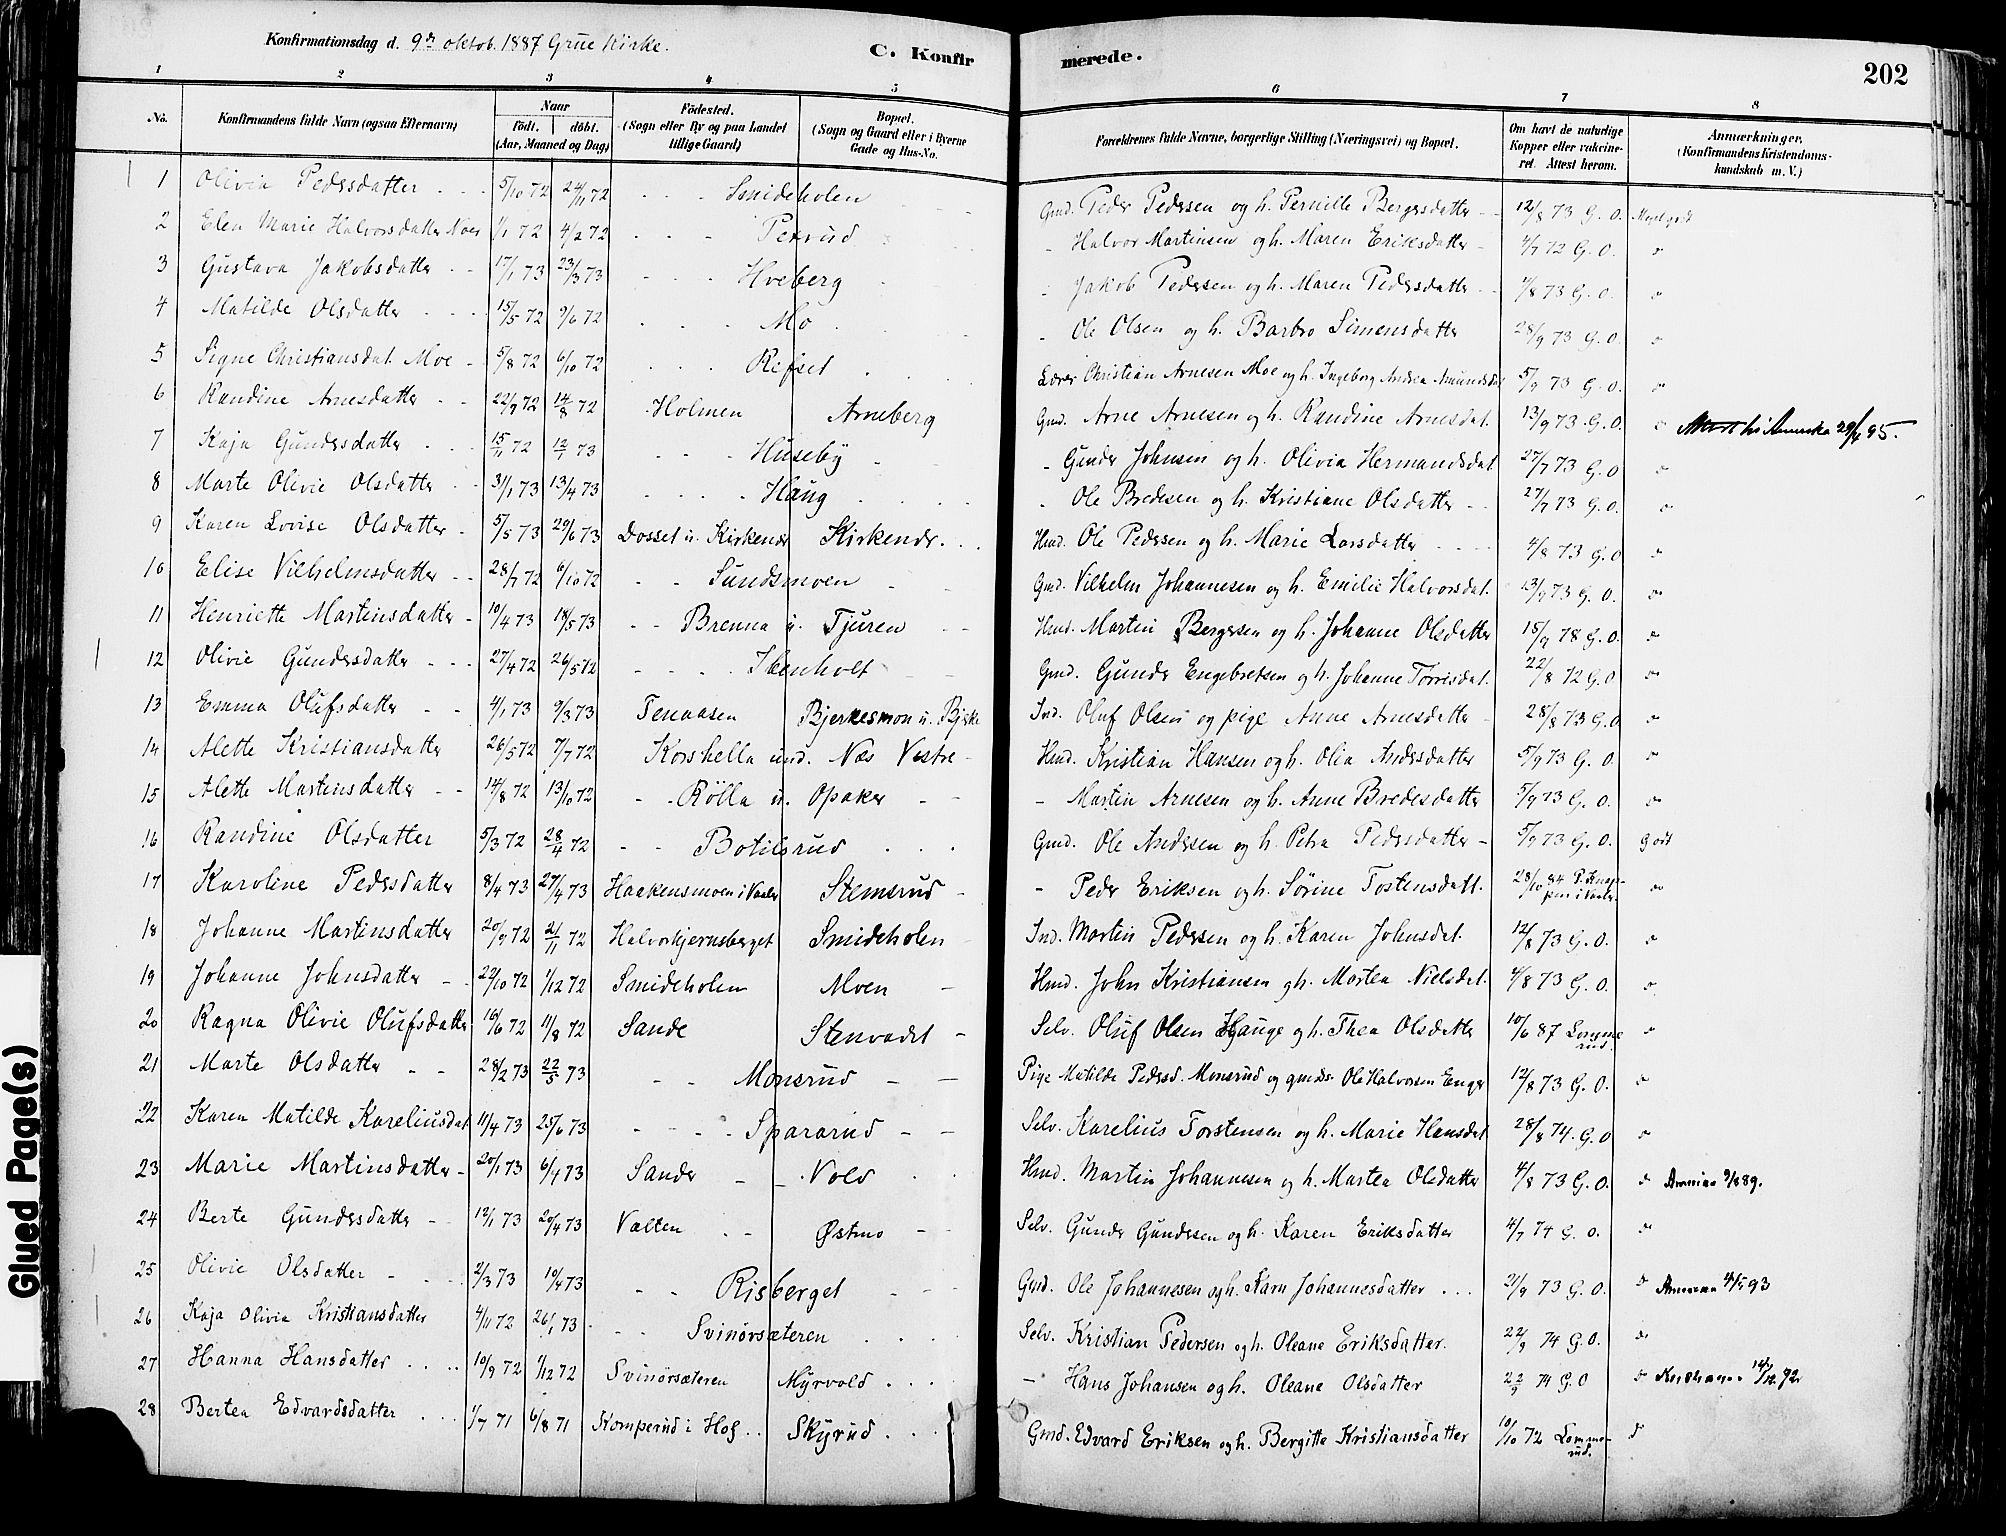 Konfirmationsdag d. 9de oktob. 1887 Grue Kirke.
C. Konfirmerede.
202
1 2 3 4 5 6 7 8
No.
Konfirmandens fulde Navn (ogsaa Efternavn)
Naar
født. | døbt.
(Aar, Maaned og Dag)
Fødested.
(Sogn eller By og paa Landet
tillige Gaard)
Bopæl.
(Sogn og Gaard eller i Byerne
Gade og Hus-No.
Forældrenes fulde Navne, borgerlige Stilling (Næringsvei) og Bopæl.
Om havt de naturlige
Kopper eller vakcine-
ret. Attest herom.
Anmærkninger.
(Konfirmandens Kristendoms-
kundskab m. V.)
1 Olivia Pedersdatter 5/10 72 24/11 72 Smideholen Gmd. Peder Pedersen og h. Pernille Bergersdatter 12/8 73 G. O. Meget godt
2 Elen Marie Halvorsdatter Noer 1/1 72 4/2 72 Perrud - Halvor Martinsen og h. Maren Eriksdatter 4/7 72 G. O. "
3 Gustava Jakobsdatter 17/1 73 23/3 73 Hveberg - Jakob Pedersen og h. Maren Pedersdatter 4/8 73 G. O. "
4 Matilde Olsdatter 15/5 72 9/6 72 Mo - Ole Olsen og h. Barbro Simensdatter 28/9 73 G. O. "
5 Signe Christiansdat. Moe 5/8 72 6/10 72 Refset Lærer Christian Arnesen Moe og h. Ingeborg Andrea Amundsdat 5/9 73 G. O. "
6 Randine Arnesdatter 22/7 72 14/8 72 Holmen Arneberg Gmd. Arne Arnesen og h. Randine Arnesdat. 13/9 73 G. O. " Attest til Amerika 29/4 95.
7 Kaja Gundersdatter 15/11 72 12/1 73 Huseby - Gunder Johnsen og h. Olivia Hermandsdat 27/7 73 G. O "
8 Marte Olivie Olsdatter 31/1 73 13/4 73 Haug - Ole Bredesen og h. Kristiane Olsdatter 27/7 73 G. O. "
9 Karen Lovise Olsdatter 5/5 73 29/6 73 Dosset u. Kirkenær Kirkenær. Hmd. Ole Pedersen og h. Marie Larsdatter 4/8 73 G. O "
10 Elise Vilhelmsdatter 28/7 72 6/10 72 Sundsmoen Gmd. Vilhelm Johannesen og h. Emilie Halvorsdat. 13/9 73 G. O. "
11 Henriette Martinsdatter 10/4 73 18/5 73 Brenna u. Tjuren Hmd. Martin Bergersen og h. Johanne Olsdatter 15/9 78 G. O. "
12 Olivie Gundersdatter 27/4 72 26/5 72 Ibenholt Gmd. Gunder Engebretsen og h. Johanne Torrisdat. 22/8 72 G. O "
13 Emma Olufsdatter 4/1 73 9/3 73 Tenaasen Bjerkesmon u. Bjrke Ind. Oluf Olsen og pige Anne Arnesdatter 28/8 73 G. O "
14 Alette Kristiansdatter 26/5 72 7/7 72 Korshella und. Næs Vestre Hmd. Kristian Hansen og h. Olia Andersdatter 5/9 73 G. O. "
15 Alette Martinsdatter 14/8 72 13/10 72 Rölla u. Opaker - Martin Arnesen og h. Anne Bredesdatter 5/9 73 G. O. "
16 Randine Olsdatter 5/3 72 28/4 72 Botilsrud Gmd. Ole Andersen og h. Petra Pedersdatter 5/9 73 G. O. Godt
17 Karoline Pedersdatter 8/4 73 27/4 73 Haakensmoen i Vaaler Stemsrud - Peder Eriksen og h. Sörine Tostensdatt. 28/10 84 "
18 Johanne Martinsdatter 20/9 72 2/11 72 Halvorkjernsberget Smideholen Ind. Martin Pedersen og h. Karen Johnsdat. 12/8 73 G. O. "
19 Johanne Johnsdatter 22/10 72 1/12 72 Smideholen Moen Hmd. John Kristiansen og h. Martea Nielsdat. 4/8 73 G. O. "
20 Ragna Olivie Olufsdatter 16/6 72 11/8 72 Sande Stenvadet Selv. Oluf Olsen Hauge og h. Thea Olsdatter 10/6 87 Lomme
rud. "
21 Marte Olsdatter 28/2 73 22/5 73 Monsrud Pige Matilde Pedersd. Monsrud og gmds. Ole Halvorsen Enger 12/8 73 G. O. "
22 Karen Matilde Kareliusdat 11/4 73 25/6 73 Spararud Selv. Karelius Torstensen og h. Marie Hansdat 28/8 74. G. O "
23 Marie Martinsdatter 20/1 73 6/4 73 Sander Vold Hmd. Martin Johannesen og h. Martea Olsdatter 4/8 73 G. O. " Amerika 9/8 89.
24 Berte Gundersdatter 12/1 73 20/4 73 Valten Østmo Selv. Gunder Gundersen og h. Karen Eriksdatter 4/7 74 G. O. "
25 Olivie Olsdatter 2/3 73 10/4 73 Risberget Gmd. Ole Johannesen og h. Karn Johannesdatter 21/9 73 G. O. " Amerika 4/5 93
26 Kaja Olivia Kristiansdatter 4/11 72 26/1 73 Svinørsæteren Selv. Kristian Pedersen og h. Oleane Eriksdatter. 22/9 74 G. O. "
27 Hanna Hansdatter 10/9 72 1/12 72 Svinørsæteren Myrvold - Hans Johansen og h. Oleane Olsdatter 22/9 74 G. O " Kristiania 14/12 92
28 Bertea Edvardsdatter 1/7 71 6/8 71 Komperud i Hof Skyrud Gmd. Edvard Eriksen og h. Bergitte Kristiansdatter 10/10 72 Lomme-
rud. "
Glued Page(s)